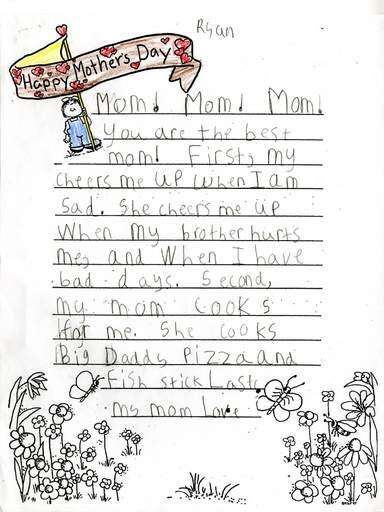 Ryan
Happy Mother's Day
Mom! Mom! Mom!
You are the best
mom! First, my
cheers me up when I am
Sad. She cheers me up
When my brother hurts
me, and When I have
bad days. Second,
my mom cooks
for me. She cooks
Big Daddy Pizza and
Fish stick Last,
my mom Love